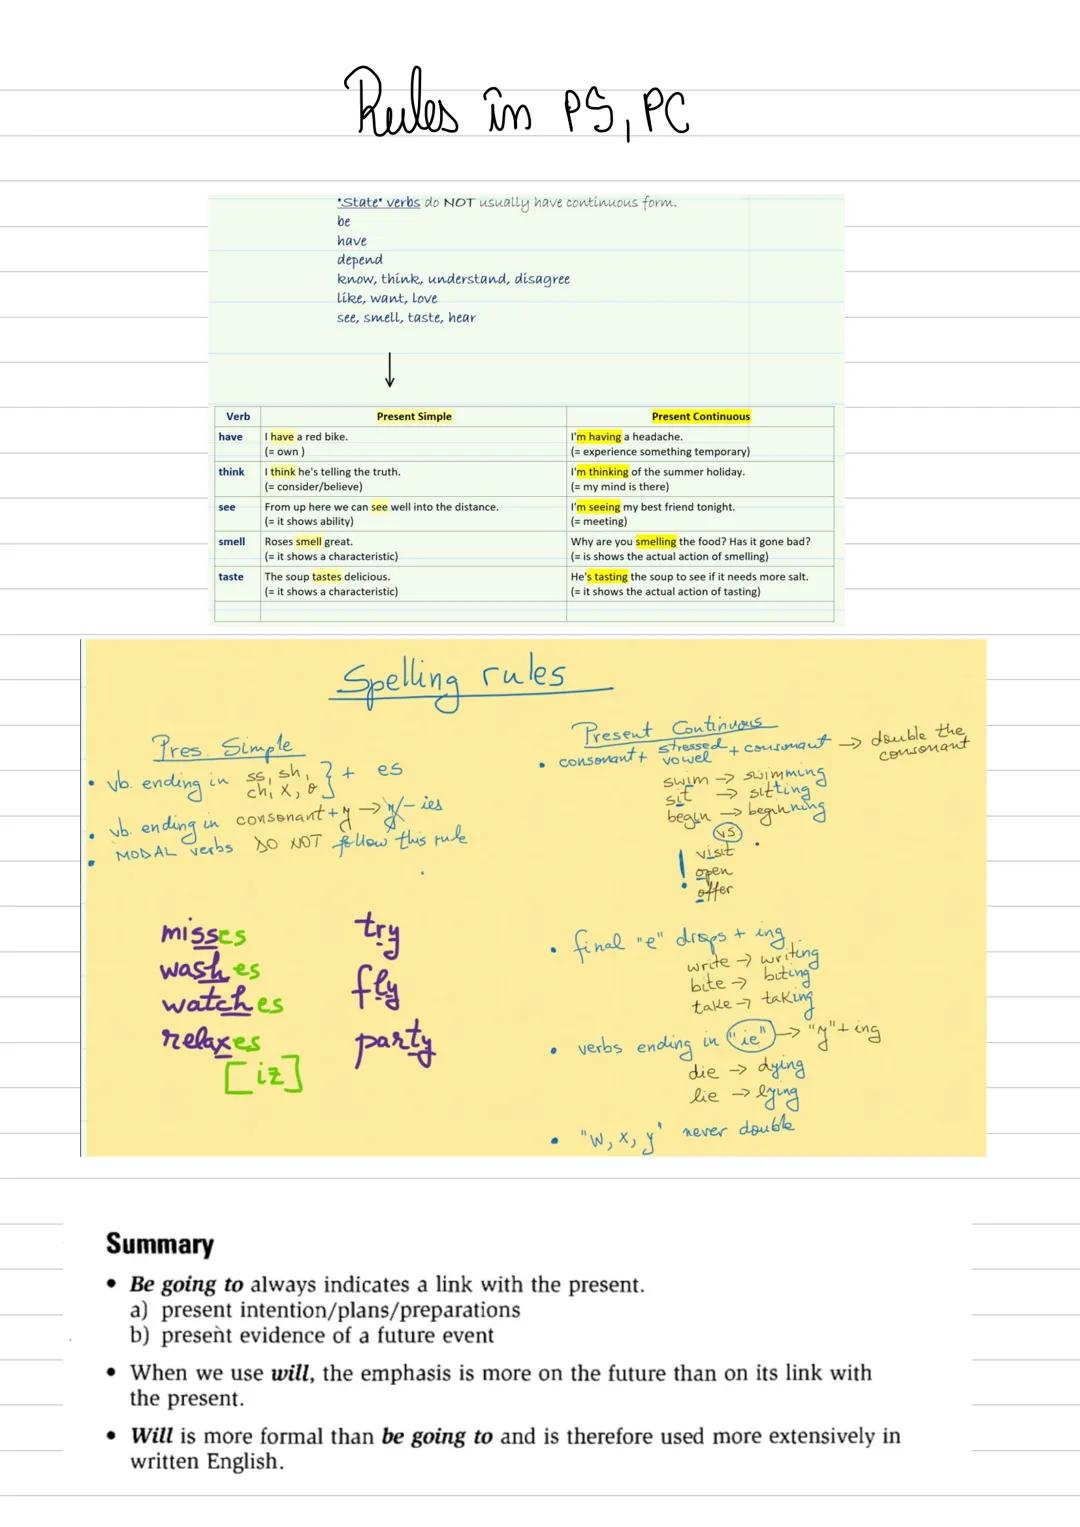 Rules în PS, PC
"State" verbs do NOT usually have continuous form.
be
have
depend
know, think, understand, disagree
like, want, love
see, smell, taste, hear
↓
Verb Present Simple Present Continuous
have I have a red bike. I'm having a headache.
(= own ) (= experience something temporary)
think I think he's telling the truth. I'm thinking of the summer holiday.
(= consider/believe) (= my mind is there)
see From up here we can see well into the distance. I'm seeing my best friend tonight.
(= it shows ability) (= meeting)
smell Roses smell great. Why are you smelling the food? Has it gone bad?
(= it shows a characteristic) (= is shows the actual action of smelling)
taste The soup tastes delicious. He's tasting the soup to see if it needs more salt.
(= it shows a characteristic) (= it shows the actual action of tasting)
Spelling rules
Pres. Simple
• vb. ending in ss, sh, ch, x, o } + es
• vb. ending in consonant + y → y - ies
• MODAL verbs DO NOT follow this rule
misses try
washes fly
watches party
relaxes
[iz]
Present Continuous
• consonant + stressed vowel + consonant → double the consonant
swim → swimming
sit → sitting
begin → beginning
vs
! visit
open
offer
• final "e" drops + ing
write → writing
bite → biting
take → taking
• verbs ending in "ie" → "y" + ing
die → dying
lie → lying
• "w, x, y" never double
Summary
• Be going to always indicates a link with the present.
a) present intention/plans/preparations
b) present evidence of a future event
• When we use will, the emphasis is more on the future than on its link with
the present.
• Will is more formal than be going to and is therefore used more extensively in
written English.